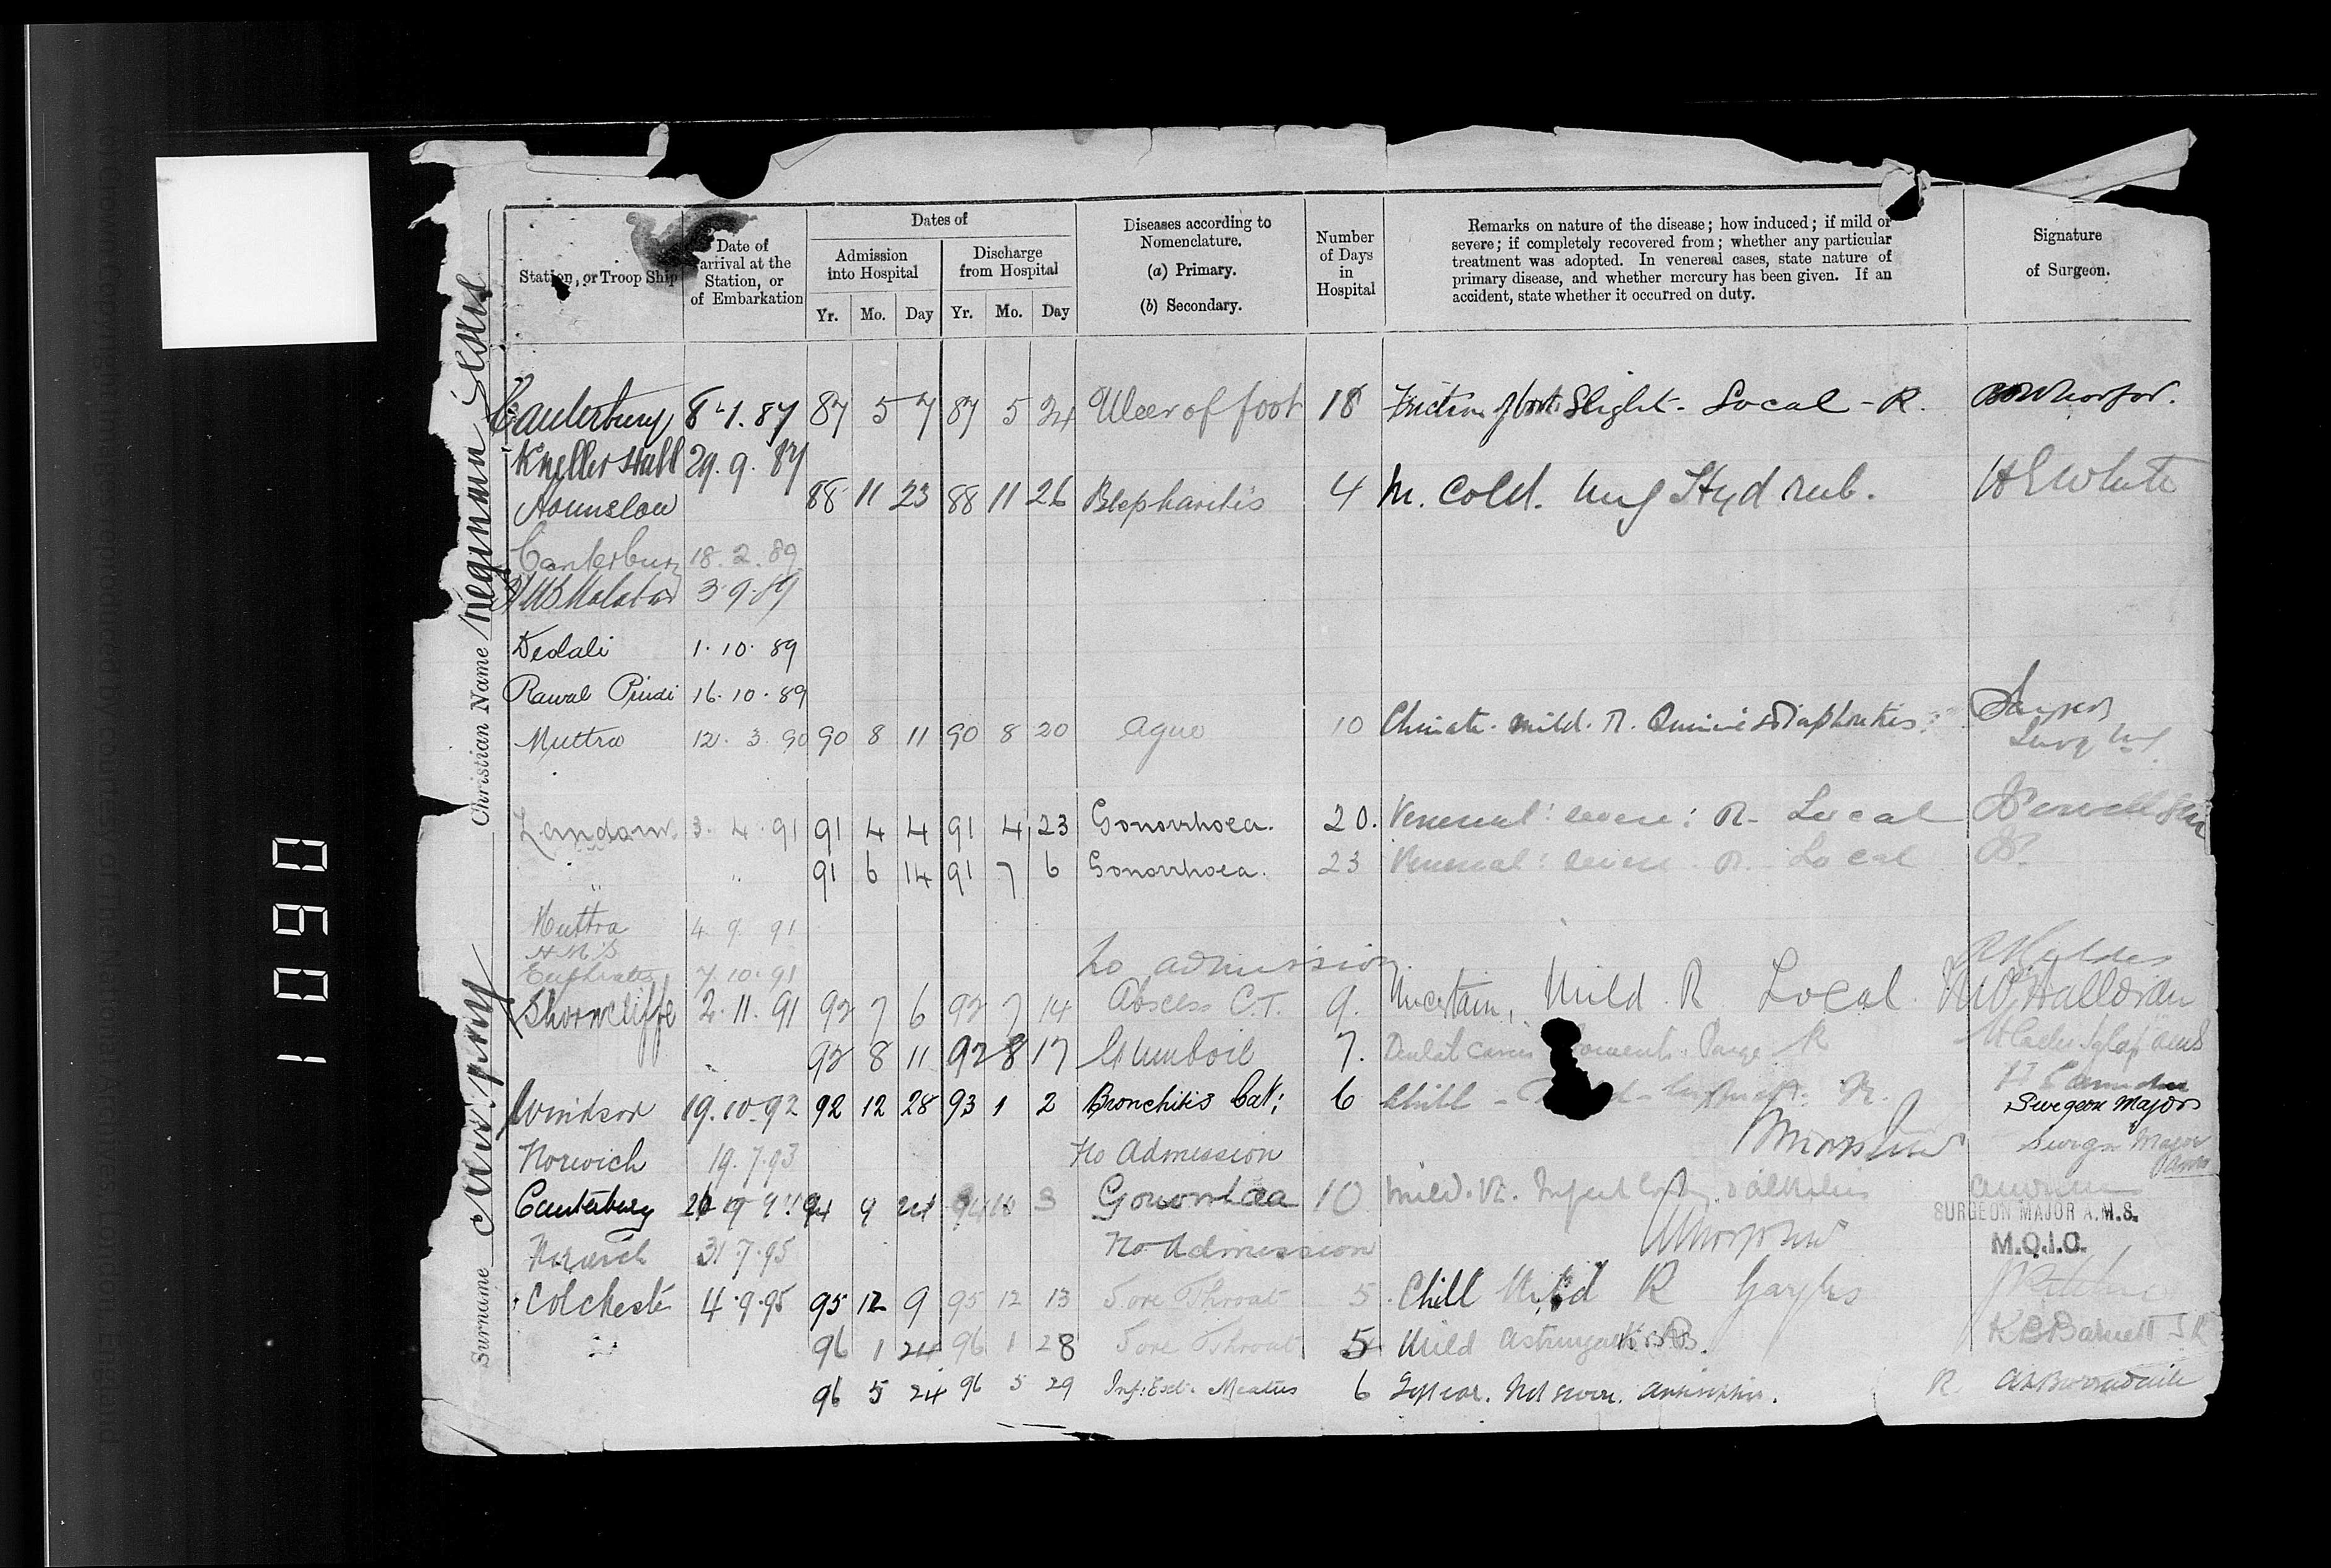 Station, or Troop Ship
Date of arrival at the Station, or of Embarkation
Dates of
Admission into Hospital
Discharge from Hospital
Yr. Mo. Day Yr. Mo. Day
Diseases according to Nomenclature.
(a) Primary.
(b) Secondary.
Number of Days in Hospital
Remarks on nature of the disease; how induced; if mild or
severe; if completely recovered from; whether any particular
treatment was adopted. In venereal cases, state nature of
primary disease, and whether mercury has been given. If an
accident, state whether it occurred on duty.
Signature
of Surgeon.
Canterbury 8.1.87 87 5 7 87 5 24 Ulcer of foot 18 Friction of boot Slight - Local - R.
Kneller Hall 29.9.87
Hounslow 88 11 23 88 11 26 Blepharitis 4 M. Cold. Ung Hyd rub. HE White
Canterbury 18.2.89
HMS Malabar 3.9.89
Deolali 1.10.89
Rawal Pindi 16.10.89
Muttra 12.3.90 90 8 11 90 8 20 Ague 10 Climate. mild. R. Quinine & Diaphoretics.
Landour 3.4.91 91 4 4 91 4 23 Gonorrhoea. 20. Venereal: severe: R. Local
" " 91 6 14 91 7 6 Gonorrhoea. 23 Venereal: severe R. Local
Muttra 4 9 91
H.M.S
Euphrates 7.10.91 No admission
Shorncliffe 2.11.91 92 7 6 92 7 14 Abscess C.T. 9. Uncertain, Mild. R Local. O'Halloran
92 8 11 92 8 17 Gumboil 7. Dental Caries Purge R
Windsor 19.10.92 92 12 28 93 1 2 Bronchitis Cat: 6 Chill - R.
Surgeon Major
Norwich 19.7.93 No Admission
Surgn Major
Canterbury 94 9 24 94 10 3 Gonorrhoea 10 Mild.
SURGEON MAJOR A.M.S.
M.O.I.C.
Norwich 31.7.95 No Admission
Colchester 4.9.95 95 12 9 95 12 13 Sore Throat 5. Chill Mild R Gargles
" 96 1 24 96 1 28 Sore Throat 5 Mild K B Barnett
96 5 24 96 5 29 Inf: Ext: Meatus 6 Left ear. Not severe. Antiseptics. R.
Christian Name
Surname
1090